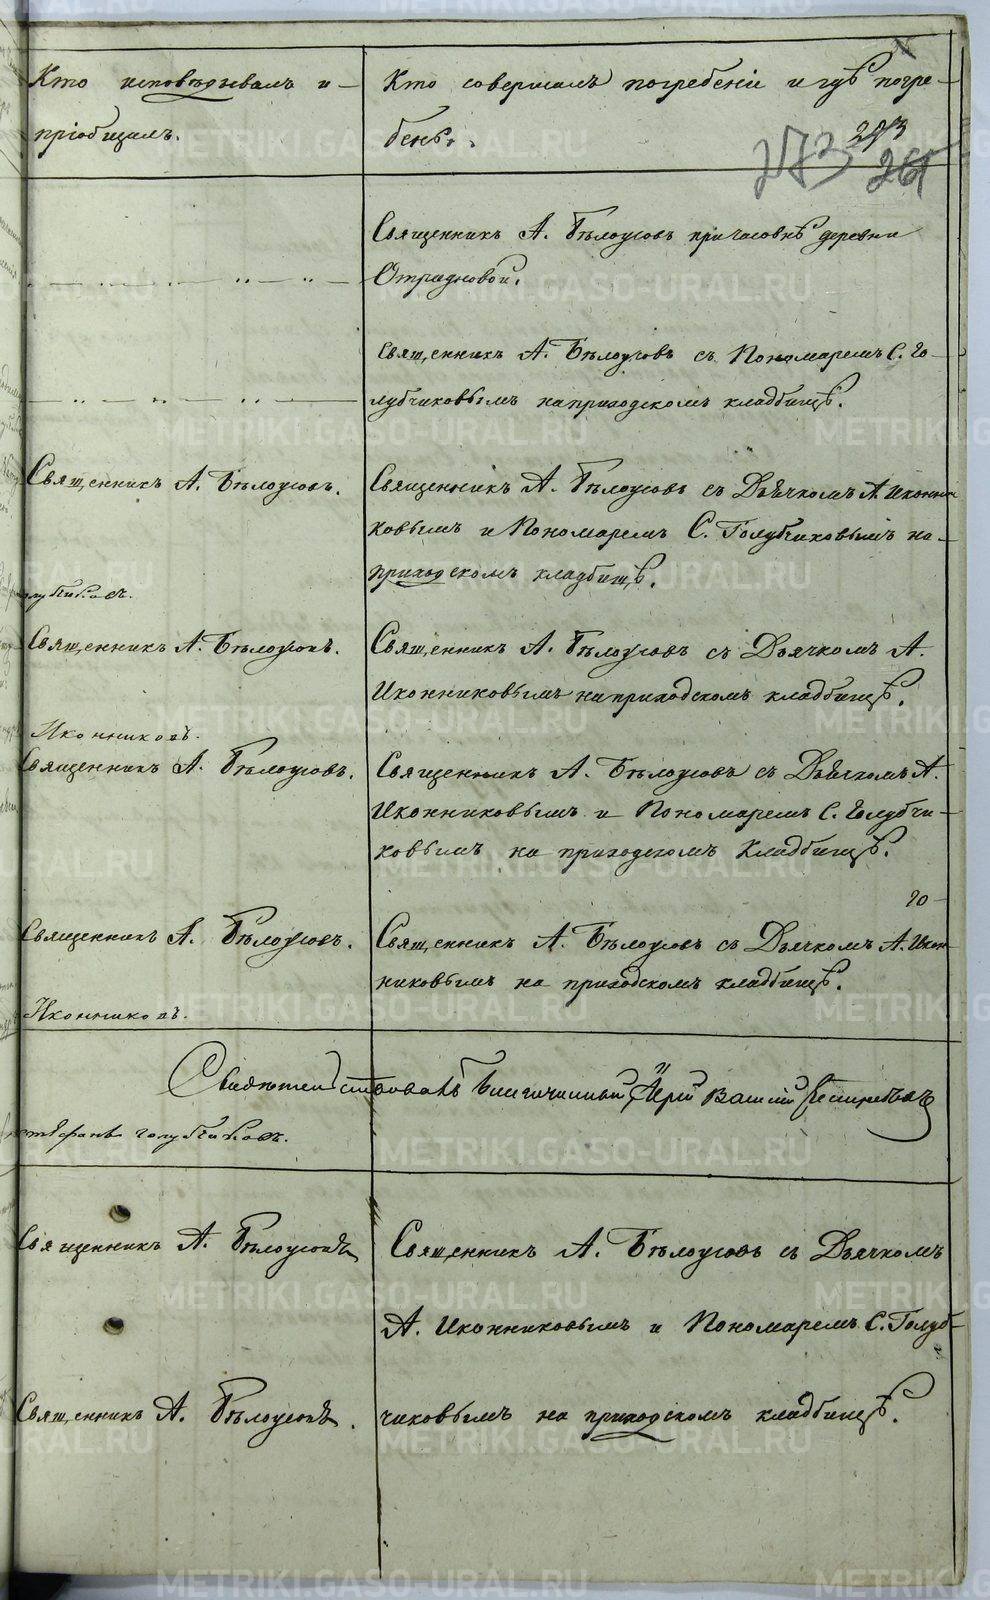 Кто исповѣдывалъ и
пріобщалъ.
Кто совершалъ погребеніи и гдѣ погре-
бенъ.
273
273
261
Священникъ А. Бѣлоусовъ при часовнѣ деревни
Отрадновой.
Священникъ А. Бѣлоусовъ съ Пономаремъ С. Го-
лубчиковымъ на приходскомъ кладбищѣ.
Священникъ А. Бѣлоусовъ.
Священникъ А. Бѣлоусовъ съ Дьячкомъ А. Иконни
ковымъ и Пономаремъ С. Голубчиковымъ на
приходскомъ кладбищѣ.
олубчиковъ.
Священникъ А. Бѣлоусовъ.
Священникъ А. Бѣлоусовъ съ Дьячкомъ А.
Иконниковымъ на приходскомъ кладбищѣ.
Иконниковъ.
Священникъ А. Бѣлоусовъ.
Священникъ А. Бѣлоусовъ съ Дьячкомъ А.
Иконниковымъ и Пономаремъ С. Голубчи-
ковымъ на приходскомъ кладбищѣ.
Священникъ А. Бѣлоусовъ.
Священникъ А. Бѣлоусовъ съ Дьячкомъ А. Икон-
никовымъ на приходскомъ кладбищѣ.
Иконниковъ.
Свидѣтельствовалъ Благочинный Іерей Василій
Стефанъ Голубчиковъ.
Священникъ А. Бѣлоусовъ
Священникъ А. Бѣлоусовъ съ Дьячкомъ
А. Иконниковымъ и Пономаремъ С. Голуб-
Священникъ А. Бѣлоусовъ.
чиковымъ на приходскомъ кладбищѣ.
METRIKI.GASO-URAL.RU